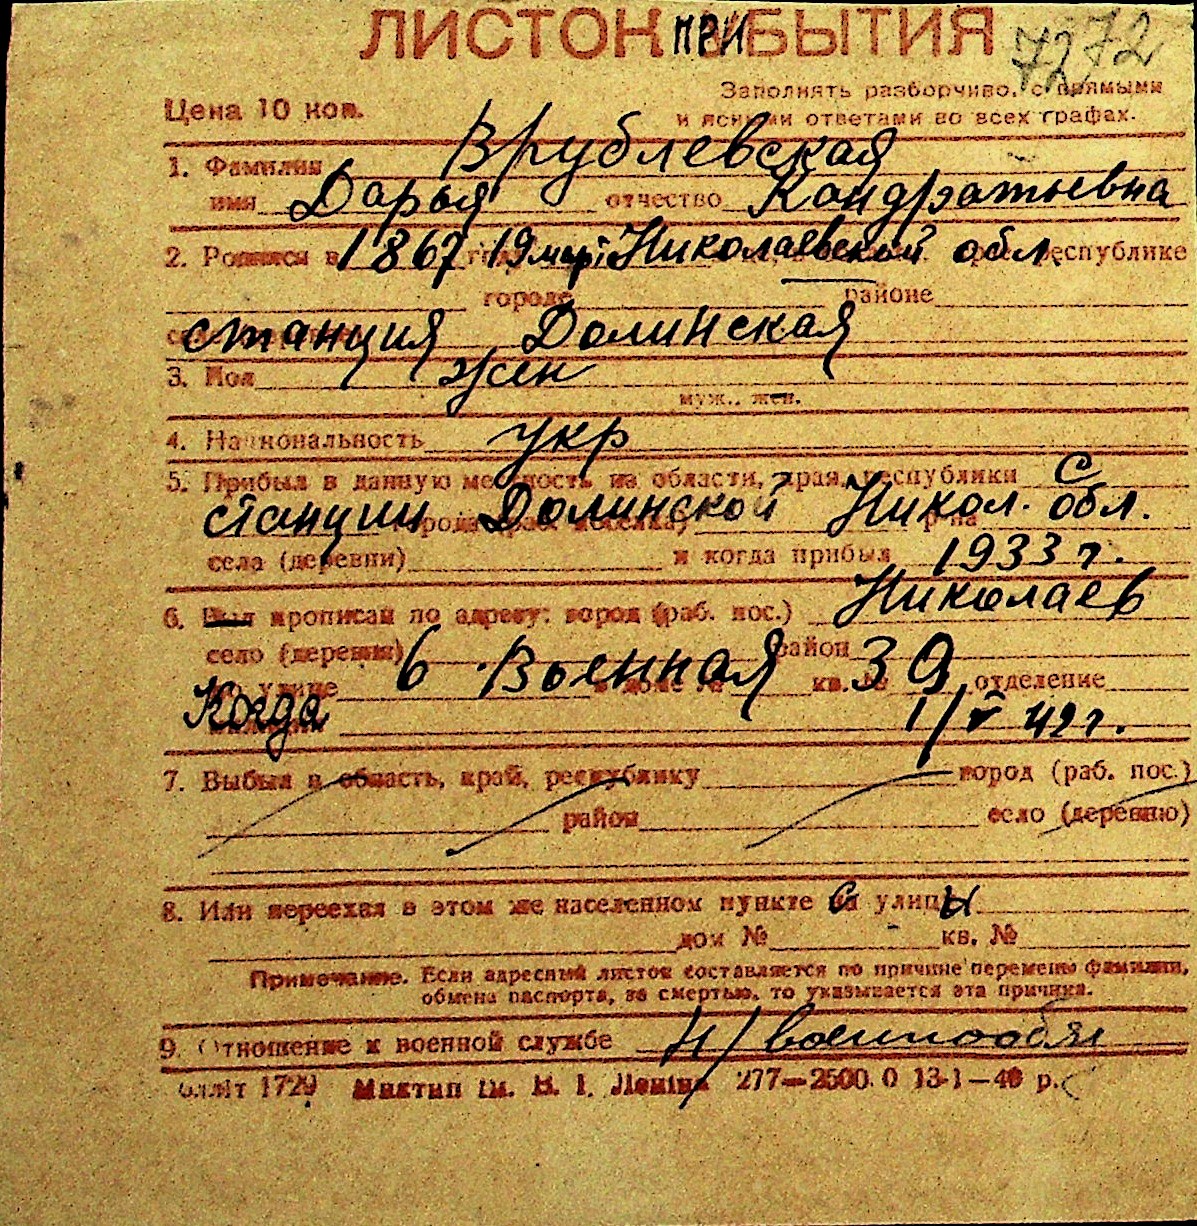 ЛИСТОК ПРИБЫТИЯ
7272
Заполнять разборчиво, с прямыми
Цена 10 коп.
и ясными ответами во всех графах.
1. Фамилия Врублевская
имя Дарья отчество Кандратьевна
2. Родился в 1867 19 Николаевской обл. республике
городе районе
станция Долинская
3. Пол жен
муж., жен.
4. Национальность укр
5. Прибыл в данную местность из области, края, республики С
станции Долинской Никол. обл.
села (деревни) и когда прибыл 1933 г.
6. Был прописан по адресу: город (раб. пос.) Николаев
село (деревня) район
по улице 6 Военная в доме № кв. № 39 отделение
Когда 1/V 42 г.
7. Выбыл в область, край, республику город (раб. пос.)
район село (деревню)
8. Или переехал в этом же населенном пункте с улицы
дом № кв. №
Примечание. Если адресный листок составляется по причине перемены фамилии,
обмена паспорта, за смертью, то указывается эта причина.
9. Отношение к военной службе н/военнообяз
1729 Миктип ім. В. І. Леніна 277—2500. 0 13-1—40 р.